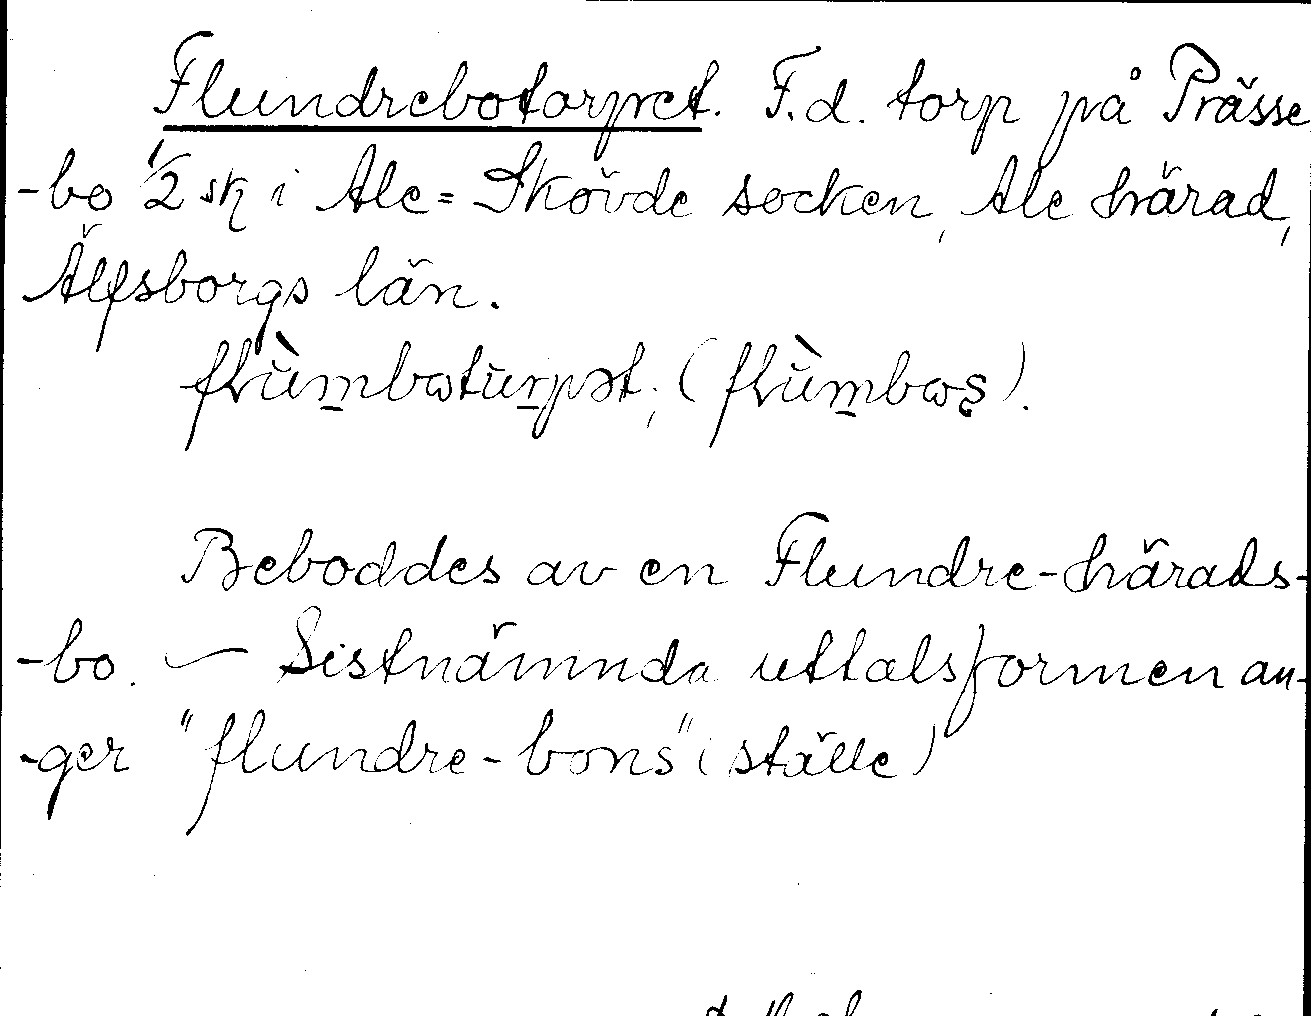 Flundrebotorpet. F.d. torp på Prässe
-bo 1/2 sk i Ale=Skövde socken, Ale härad,
Älfsborgs län.
flùmbɷturpət, (flùmbɷs).
Beboddes av en Flundre-härads-
-bo. — Sistnämnda uttalsformen an-
-ger "flundre-bons" (ställe)